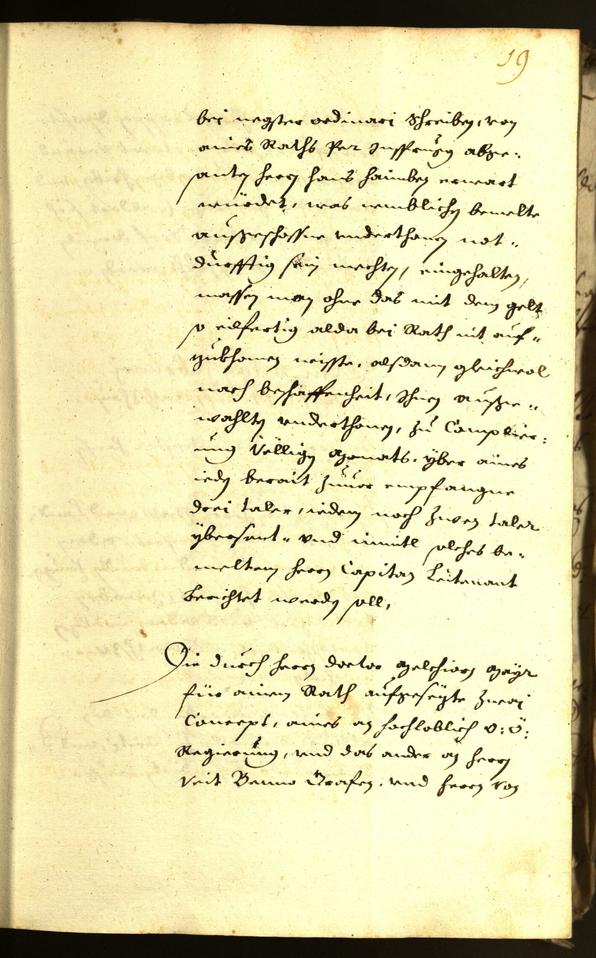 19
bei negster ordinari schreiben, von
aines Raths per Insprugg abge-
santen herrn hans haimben erwart
würdet, was nemblichen bemelte
außgeschossne underthonen not-
durfftig sein mechten, eingehalten,
massen man ohne das mit dem gelt
so eilfertig alda bei Rath nit auf-
zukhomen wisste, alsdann gleichwol
nach beschaffenheit, Ihnen außer-
wohlten underthonen, zu Complier-
ung völligen Monats, yber aines
ieden berait zuvor empfangne
drei taler, iedem noch zwen taler
ybersent, und inmitl solches be-
meltem herrn Capitan Leitenant
berichtet werden soll,
Die durch herrn doctor Melchiorn Mayr
für ainem Rath aufgesezte zwai
Concept, aines an hochloblich o: ö:
Regierung, und das ander an herrn
Veit Benno Grafen, und herrn von